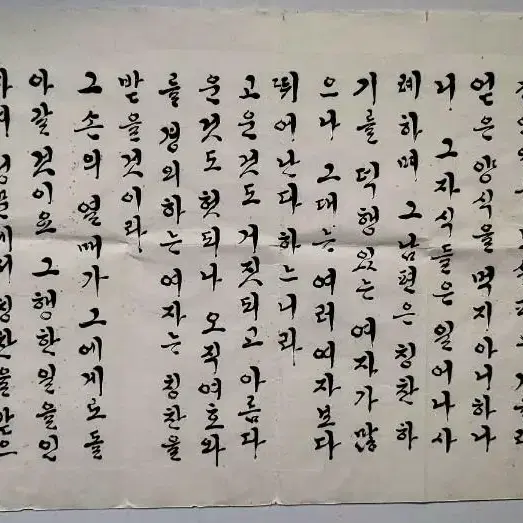 얻은 양식을 먹지아니하나
니 그자식들은 일어나사
례하며 그남편은 칭찬하
기를 덕행있는 여자가 많
으나 그대는 여러 여자보다
뛰어난다 하느니라
고운것도 거짓되고 아름다
운것도 헛되나 오직여호와
를 경외하는 여자는 칭찬을
받을것이라
그 손의 열매가 그에게로 돌
아갈 것이요 그 행한일을 인
칭찬을 받으